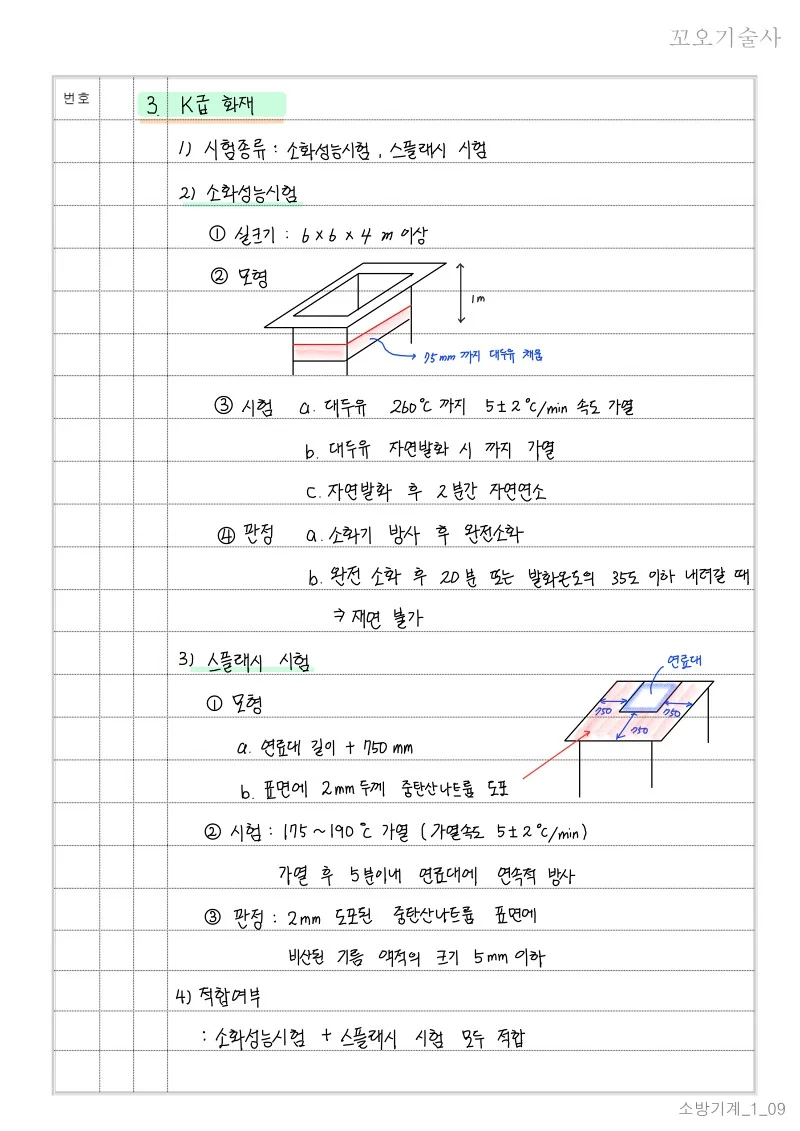 꼬오기술사
번호
3. K급 화재
1) 시험종류 : 소화성능시험, 스플래시 시험
2) 소화성능시험
① 실크기 : 6×6×4 m 이상
② 모형
1m
75mm 까지 대두유 채움
③ 시험 a. 대두유 260℃ 까지 5±2℃/min 속도 가열
b. 대두유 자연발화 시 까지 가열
c. 자연발화 후 2분간 자연연소
④ 판정 a. 소화기 방사 후 완전소화
b. 완전 소화 후 20분 또는 발화온도의 35도 이하 내려갈 때
⇒ 재연 불가
3) 스플래시 시험
연료대
① 모형
750 750
750
a. 연료대 길이 + 750mm
b. 표면에 2mm 두께 중탄산나트륨 도포
② 시험 : 175~190℃ 가열 (가열속도 5±2℃/min)
가열 후 5분이내 연료대에 연속적 방사
③ 판정 : 2mm 도포된 중탄산나트륨 표면에
비산된 기름 액적의 크기 5mm 이하
4) 적합여부
: 소화성능시험 + 스플래시 시험 모두 적합
소방기계_1_09